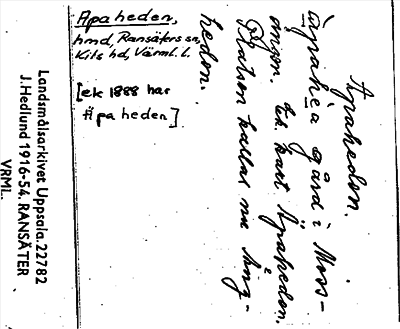 Apaheden,
hmd, Ransäters sn,
Kils hd, Värml. l.
[ek 1888 har
Äpaheden]
Apahedon.
äpahea gård i Moss-
Ek. kart Äpahedon.
Platsen kallas nu Ling-
hedon.
Landsmålsarkivet Uppsala. 22782
J. Hedlund 1916-54. RANSÄTER
VRML.